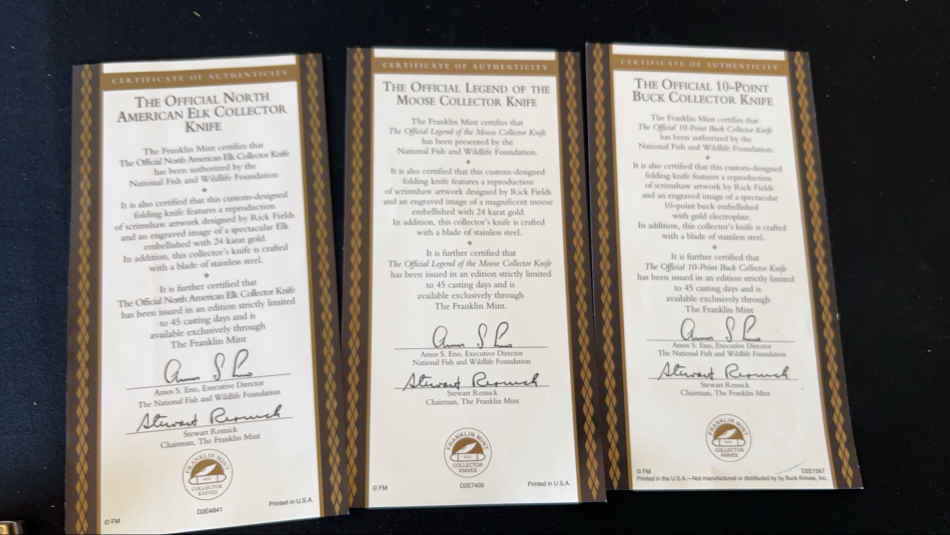 CERTIFICATE OF AUTHENTICITY
THE OFFICIAL NORTH
AMERICAN ELK COLLECTOR
KNIFE
The Franklin Mint certifies that
The Official North American Elk Collector Knife
has been authorized by the
National Fish and Wildlife Foundation.
It is also certified that this custom-designed
folding knife features a reproduction
of scrimshaw artwork designed by Rick Fields
and an engraved image of a spectacular Elk
embellished with 24 karat gold.
In addition, this collector's knife is crafted
with a blade of stainless steel.
It is further certified that
The Official North American Elk Collector Knife
has been issued in an edition strictly limited
to 45 casting days and is
available exclusively through
The Franklin Mint
Amos S. Eno, Executive Director
The National Fish and Wildlife Foundation
Stewart Resnick
Stewart Resnick
Chairman, The Franklin Mint
FRANKLIN MINT
COLLECTOR
KNIVES
© FM
Printed in U.S.A.
CERTIFICATE OF AUTHENTICITY
THE OFFICIAL LEGEND OF THE
MOOSE COLLECTOR KNIFE
The Franklin Mint certifies that
The Official Legend of the Moose Collector Knife
has been presented by the
National Fish and Wildlife Foundation.
It is also certified that this custom-designed
folding knife features a reproduction
of scrimshaw artwork designed by Rick Fields
and an engraved image of a magnificent moose
embellished with 24 karat gold.
In addition, this collector's knife is crafted
with a blade of stainless steel.
It is further certified that
The Official Legend of the Moose Collector Knife
has been issued in an edition strictly limited
to 45 casting days and is
available exclusively through
The Franklin Mint.
Amos S. Eno, Executive Director
National Fish and Wildlife Foundation
Stewart Resnick
Stewart Resnick
Chairman, The Franklin Mint.
FRANKLIN MINT
COLLECTOR
KNIVES
© FM
Printed in U.S.A.
CERTIFICATE OF AUTHENTICITY
THE OFFICIAL 10-POINT
BUCK COLLECTOR KNIFE
The Franklin Mint certifies that
The Official 10-Point Buck Collector Knife
has been authorized by the
National Fish and Wildlife Foundation.
It is also certified that this custom-designed
folding knife features a reproduction
of scrimshaw artwork by Rick Fields
and an engraved image of a spectacular
10-point buck embellished
with gold electroplate.
In addition, this collector's knife is crafted
with a blade of stainless steel.
It is further certified that
The Official 10-Point Buck Collector Knife
has been issued in an edition strictly limited
to 45 casting days and is
available exclusively through
The Franklin Mint.
Amos S. Eno, Executive Director
The National Fish and Wildlife Foundation
Stewart Resnick
Stewart Resnick
Chairman, The Franklin Mint
FRANKLIN MINT
COLLECTOR
KNIVES
© FM
Printed in the U.S.A.—Not manufactured or distributed by by Buck Knives, Inc.